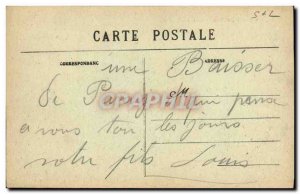 S&L
CARTE POSTALE
CORRESPONDANCE
ADRESSE
une Baisser
de Paris S/M qui pense
a vous tou les jours
votre fils Louis
CPAPHIL.com